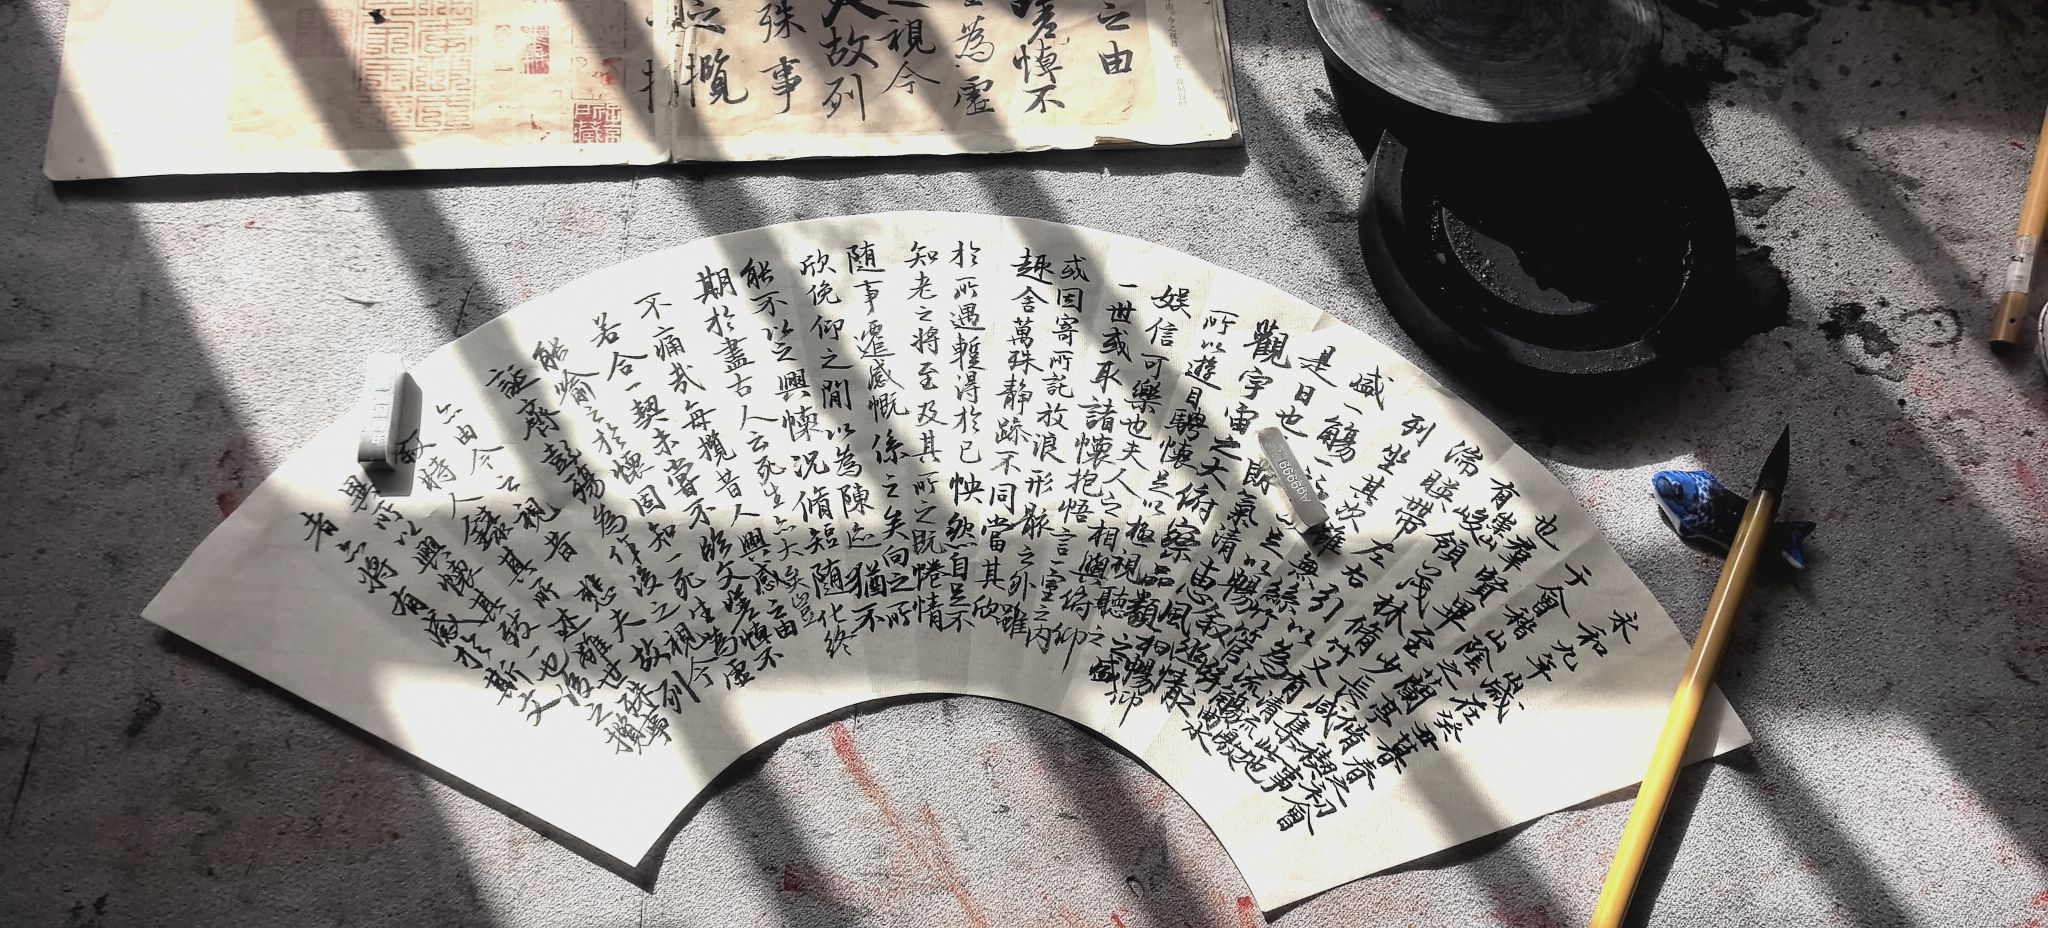 之由
嗟悼不
為虛
視今
故列
殊事
之攬
永和九年歲在癸丑暮春之初會
于會稽山陰之蘭亭脩禊事
也羣賢畢至少長咸集此地
有崇山峻領茂林脩竹又有清流激
湍暎帶左右引以為流觴曲水
列坐其次雖無絲竹管弦之
盛一觴一詠亦足以暢敘幽情
是日也朗氣清惠風和暢仰
觀宇宙之大俯察品類之盛
所以遊目騁懷足以極視聽之
娛信可樂也夫人之相與俯仰
一世或取諸懷抱悟言一室之內
或因寄所託放浪形骸之外雖
趣舍萬殊靜躁不同當其欣
於所遇蹔得於己怏然自足不
知老之將至及其所之既惓情
随事遷感慨係之矣向之所
欣俛仰之間以為陳迹猶不
能不以之興懷況脩短随化終
期於盡古人云死生亦大矣豈
不痛哉每攬昔人興感之由
若合一契未嘗不臨文嗟悼不
能喻之於懷固知一死生為虛
誕齊彭殤為妄作後之視今
亦由今之視昔悲夫故列
敘時人錄其所述雖世殊事
異所以興懷其致一也後之攬
者亦將有感於斯文